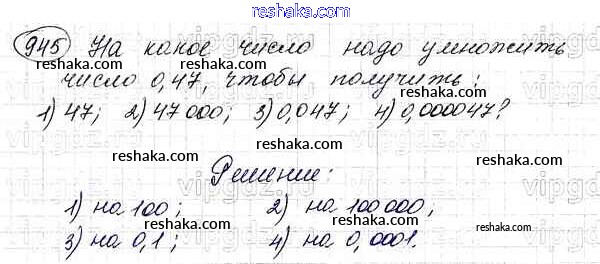 reshaka.com
945 На какое число надо умножить
число 0,47, чтобы получить:
1) 47; 2) 47 000; 3) 0,047; 4) 0,000047?
reshaka.com reshaka.com reshaka.com
Решение:
reshaka.com
1) на 100; 2) на 100 000;
reshaka.com reshaka.com
3) на 0,1; 4) на 0,0001.
reshaka.com reshaka.com